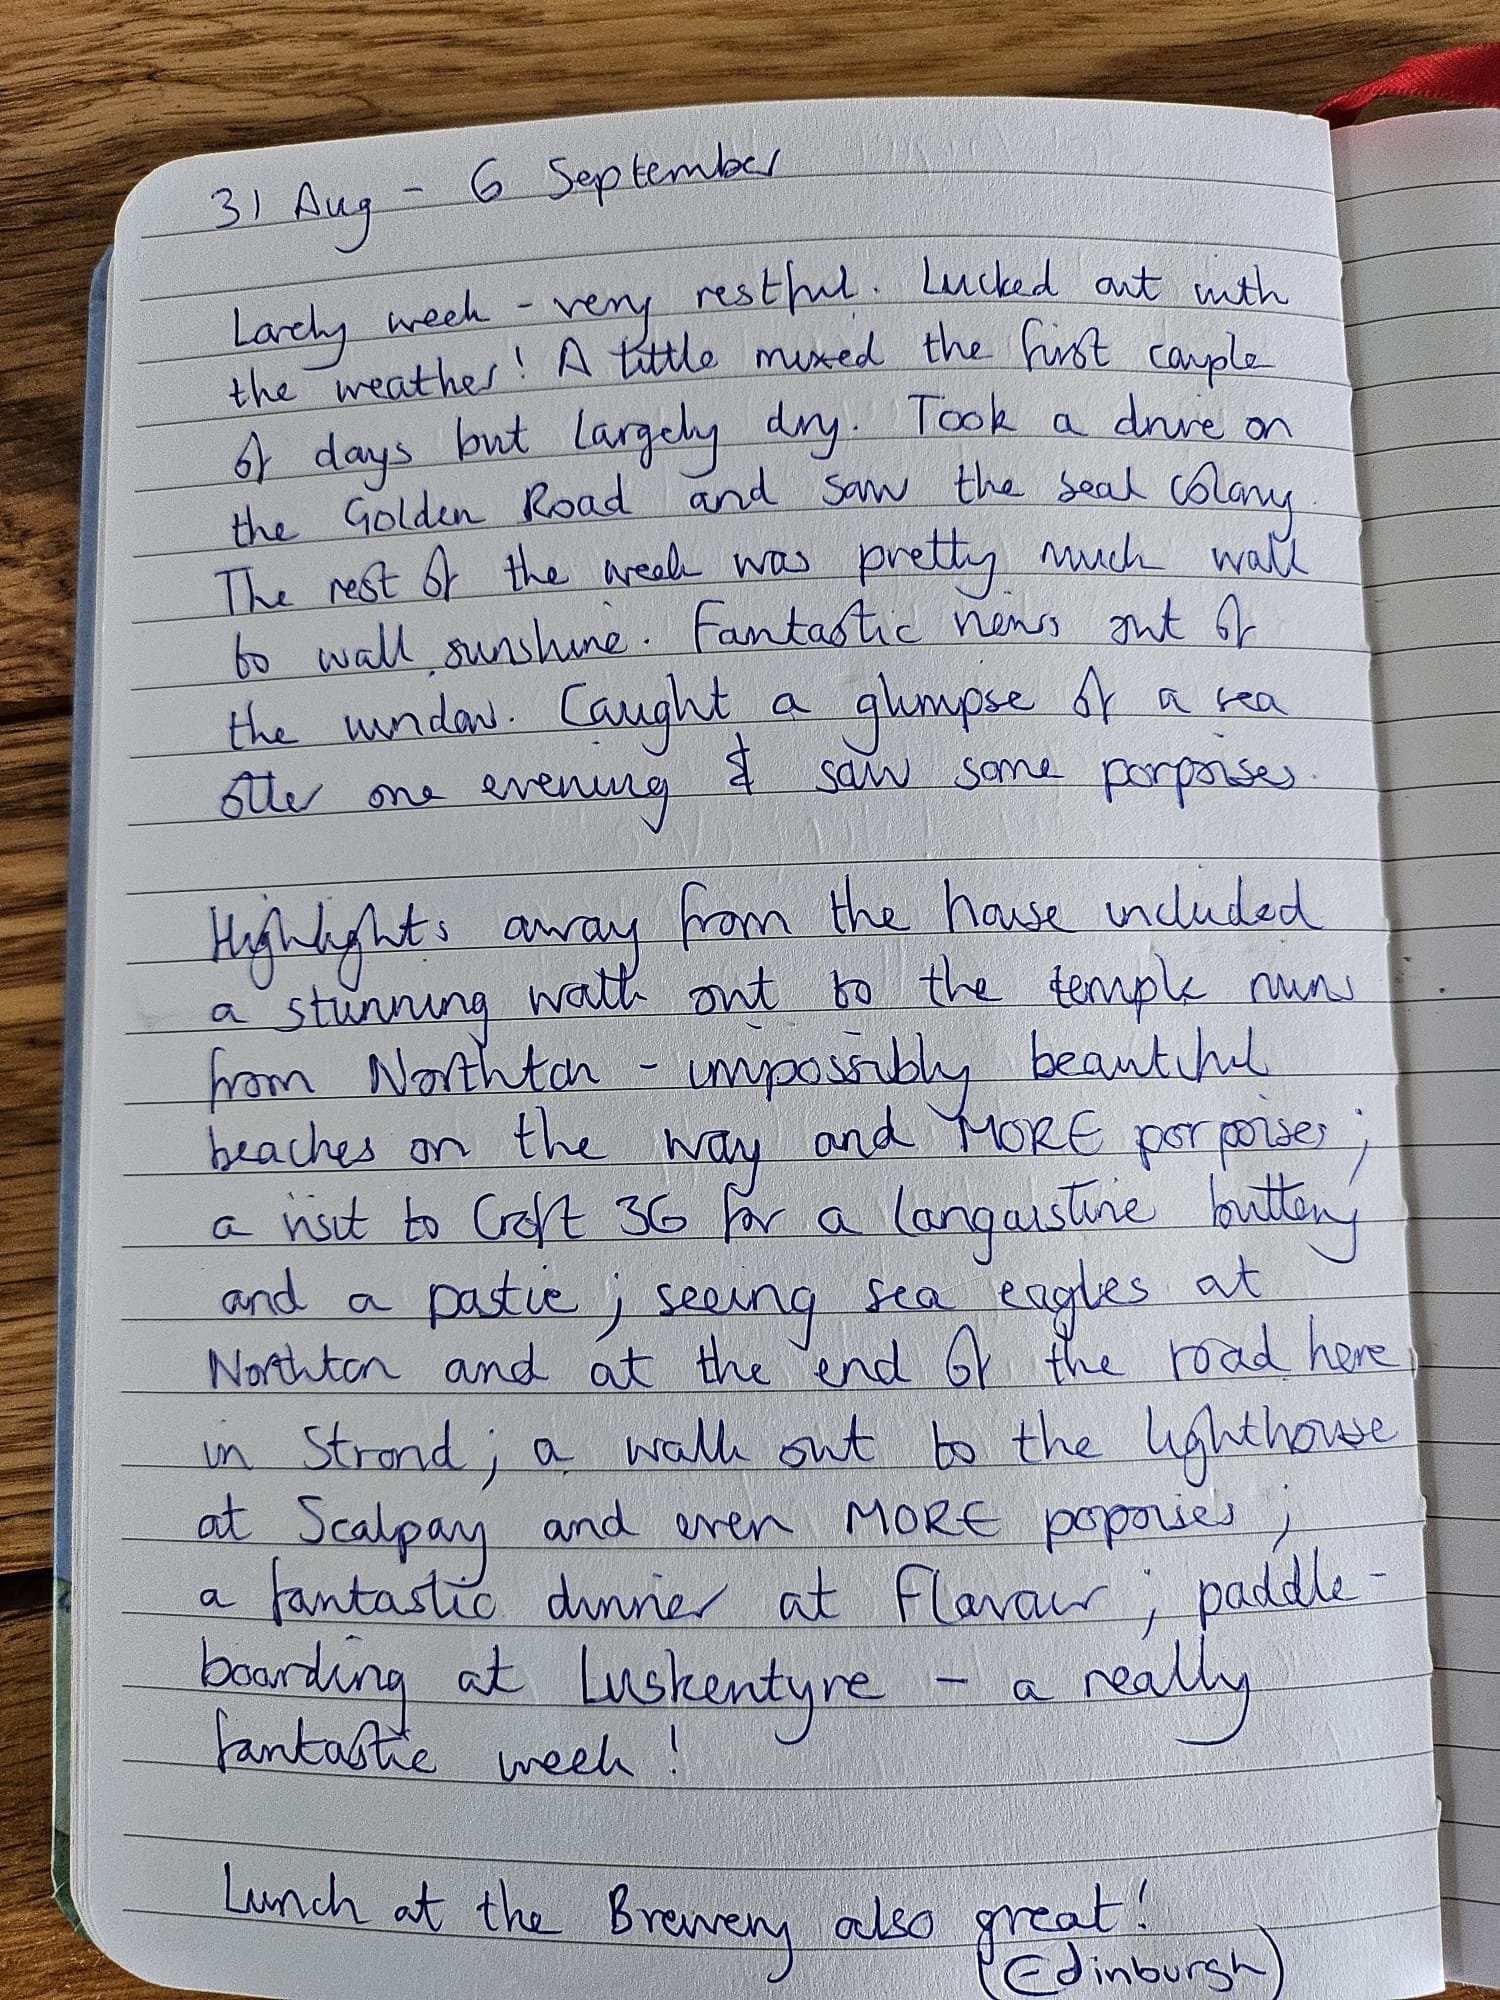 31 Aug - 6 September
Lovely week - very restful. Lucked out with
the weather! A little mixed the first couple
of days but largely dry. Took a drive on
the Golden Road and saw the seal colony.
The rest of the week was pretty much wall
to wall sunshine. Fantastic views out of
the window. Caught a glimpse of a sea
otter one evening & saw some porpoises.
Highlights away from the house included
a stunning walk out to the temple ruins
from Northton - impossibly beautiful
beaches on the way and MORE porpoises;
a visit to Croft 36 for a langoustine buttery
and a pastie; seeing sea eagles at
Northton and at the end of the road here
in Strond; a walk out to the lighthouse
at Scalpay and even MORE poporises;
a fantastic dinner at Flavour; paddle-
boarding at Luskentyre - a really
fantastic week!
Lunch at the Brewery also great!
(Edinburgh)